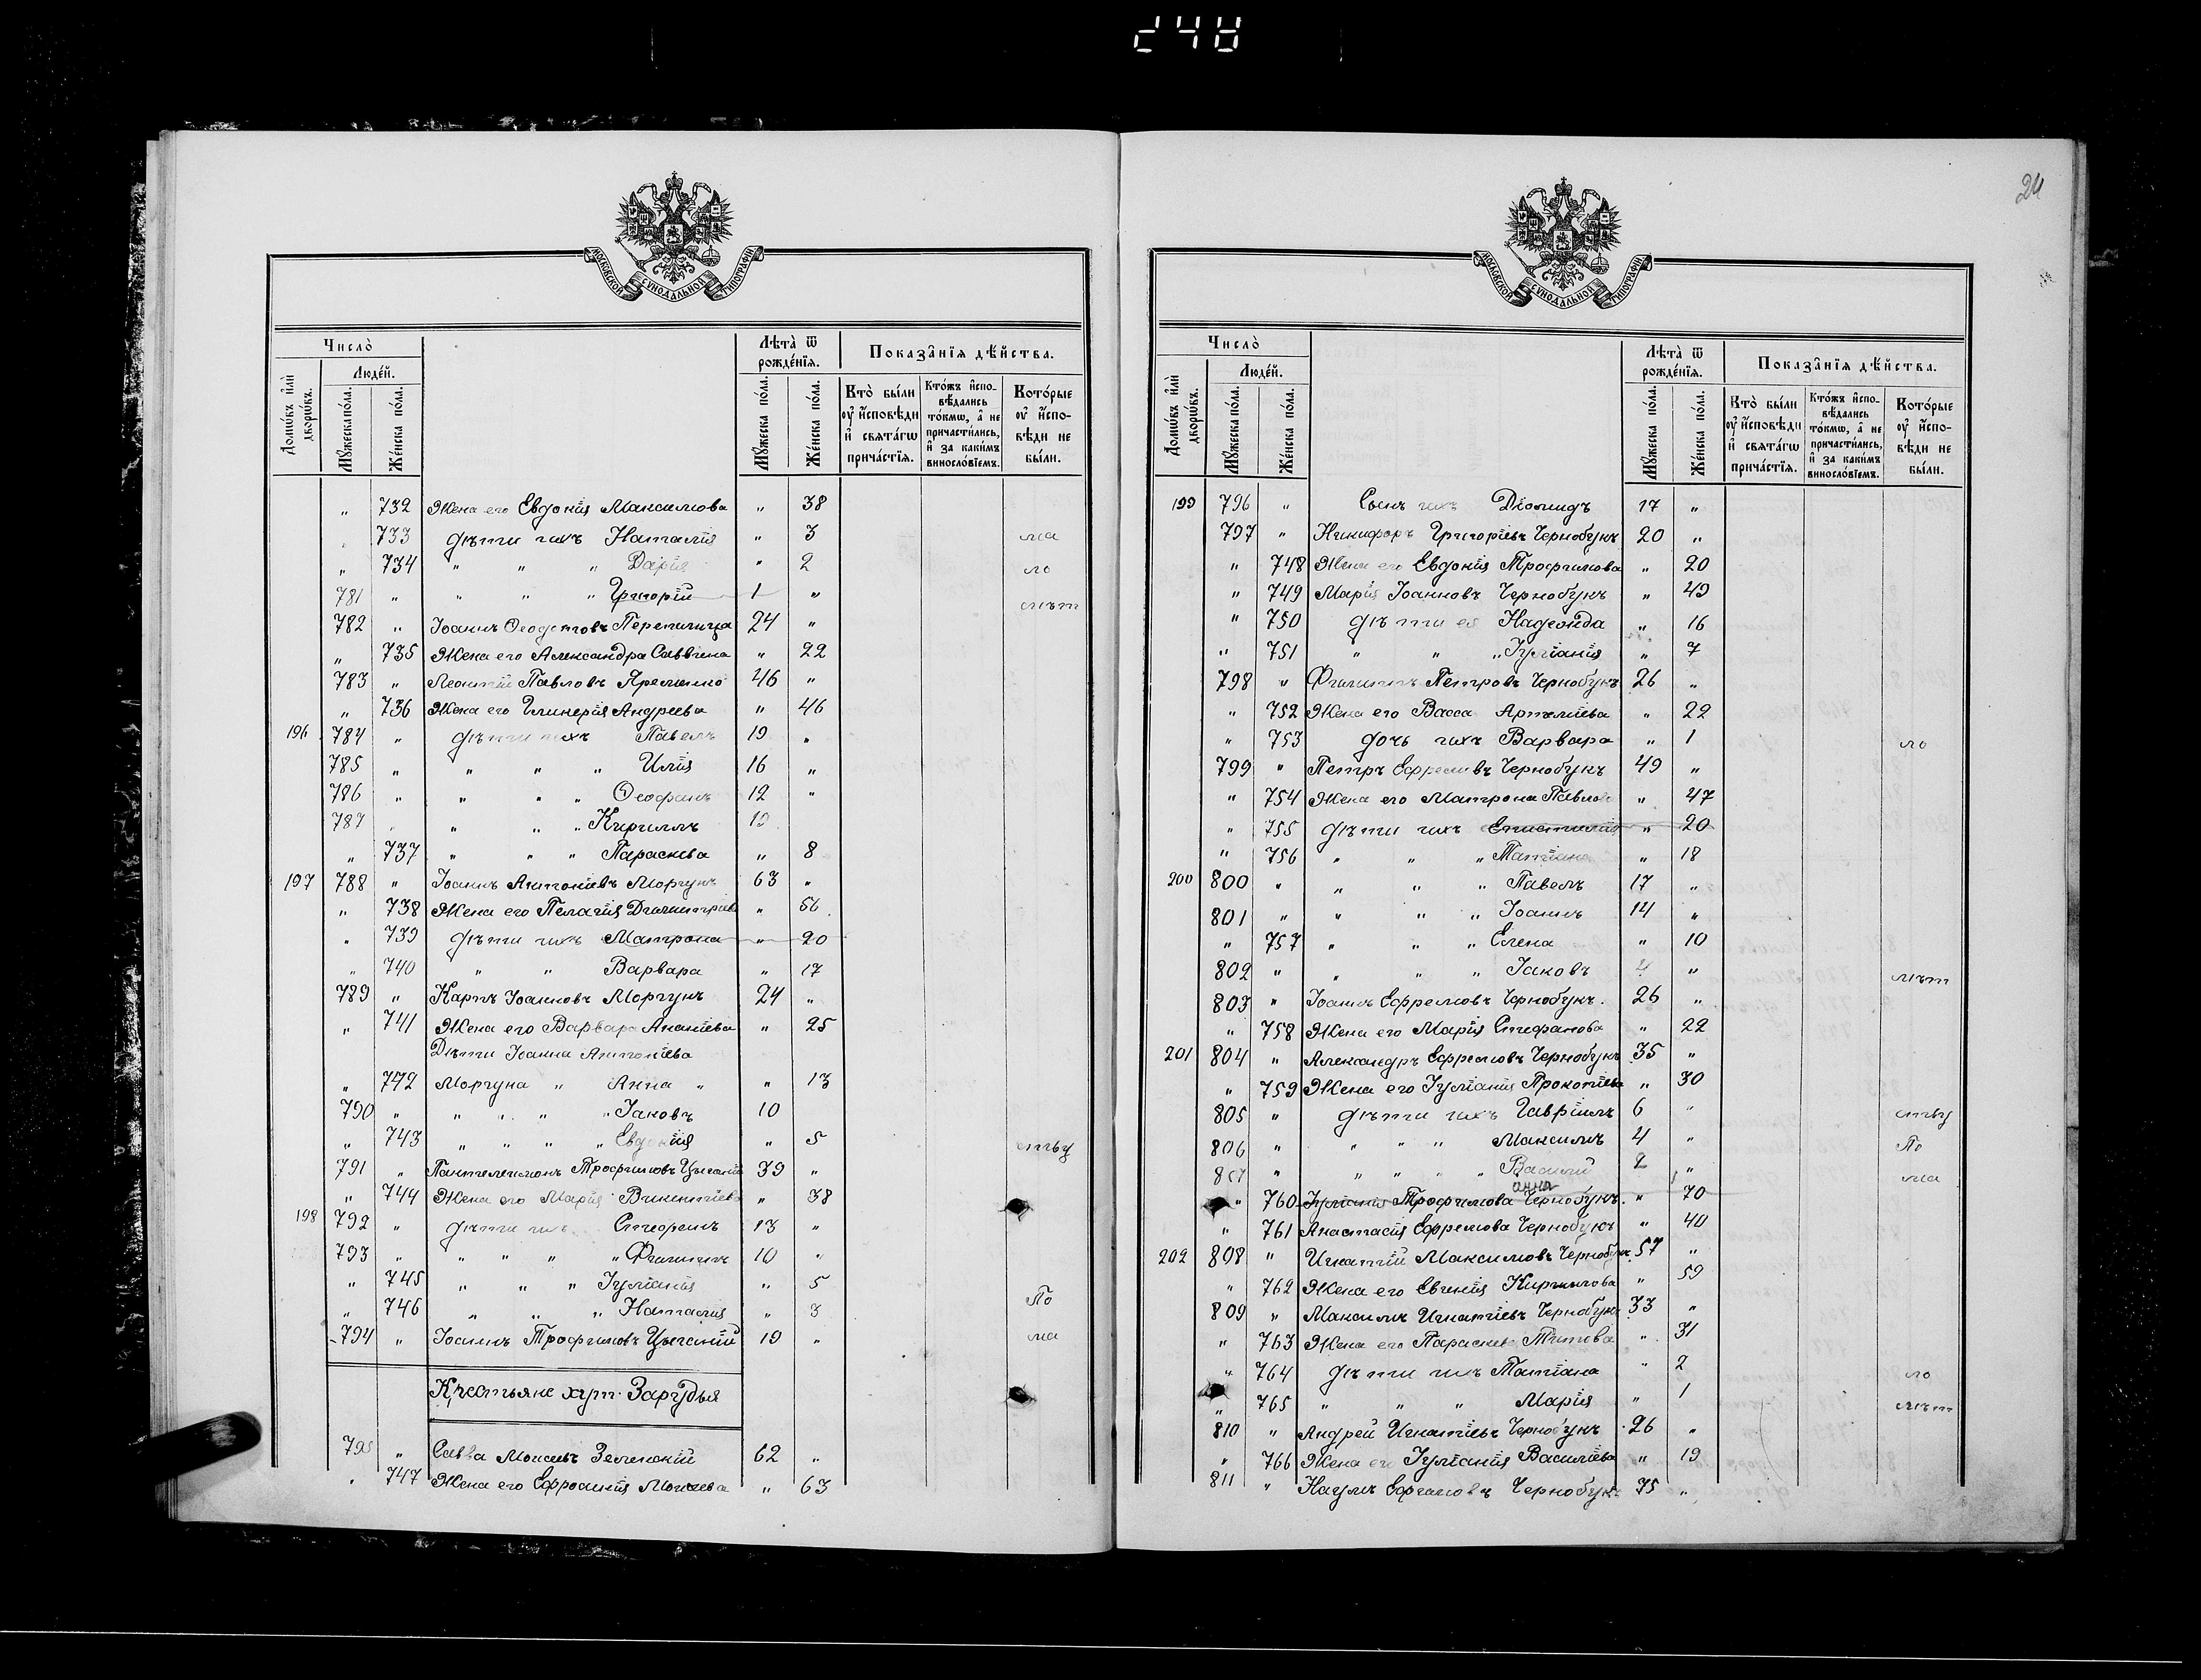 248
МОСКОВСКОЙ СѴНОДАЛЬНОЙ ТИПОГРАФІИ
Число̀
Людéй.
Домѡ́въ и҆лѝ дворѡ́въ.
Мꙋ́жеска по́ла.
Же́нска по́ла.
Лѣ́та̀ ѿ рожде́нїѧ.
Мꙋ́жеска по́ла.
Же́нска по́ла.
Показа̑нїѧ дѣ́йства.
Кто̀ бы́ли оу҆ и҆́сповѣди и҆ свѧта́гѡ прича́стїѧ.
Кто́жъ и҆спо-вѣ́дались то́кмѡ, а҆ не причасти́лись, и҆ за каки́мъ винослóвїемъ.
Кото́рые оу҆ и҆́спо-вѣди не бы́ли.
" 732 Жена его Евдокія Максимова " 38
" 733 дѣти ихъ Наталія " 3 ма
" 734 " " " Дарія " 2 ло
781 " " " " Григорій 1 " лѣт
782 " Іоаннъ Ѳеодотовъ Перепилица 24 "
" 735 Жена его Александра Саввина " 22
783 " Леонтій Павловъ Яременко 46 "
" 736 Жена его Гликерія Андреева " 46
196 784 " дѣти ихъ Павелъ 19 "
785 " " " " Илія 16 "
786 " " " " Ѳеофанъ 12 "
787 " " " " Кириллъ 10
" 737 " " " Параскева " 8
197 788 " Іоаннъ Антоніевъ Моргунъ 63 "
" 738 Жена его Пелагія Димитріева " 56
" 739 дѣти ихъ Матрона " 20
" 740 " " Варвара " 17
789 " Карпъ Іоанновъ Моргунъ 24 "
" 741 Жена его Варвара Ананіева " 25
Дѣти Іоанна Антоніева
" 742 Моргуна " Анна " " 13
790 " " " " " Іаковъ 10
" 743 " " " " Евдокія " 5 ству
791 " Пантелеимонъ Трофимовъ Цыганій 39 "
" 744 Жена его Марія Викентіева " 38
198 792 " дѣти ихъ Стефанъ 13 "
793 " " " " " Филиппъ 10 "
" 745 " " " Іуліанія " 5
" 746 " " " Наталія " 3 По
794 " Іоаннъ Трофимовъ Цыганій 19 " ма
Крестьяне хут. Зарудья
795 " Савва Моисеевъ Зеленскій 62 "
" 747 Жена его Ефросинія Моисеева " 63
24
МОСКОВСКОЙ СѴНОДАЛЬНОЙ ТИПОГРАФІИ
Число̀
Людéй.
Домѡ́въ и҆лѝ дворѡ́въ.
Мꙋ́жеска по́ла.
Же́нска по́ла.
Лѣ́та̀ ѿ рожде́нїѧ.
Мꙋ́жеска по́ла.
Же́нска по́ла.
Показа̑нїѧ дѣ́йства.
Кто̀ бы́ли оу҆ и҆́сповѣди и҆ свѧта́гѡ прича́стїѧ.
Кто́жъ и҆спо-вѣ́дались то́кмѡ, а҆ не причасти́лись, и҆ за каки́мъ винослóвїемъ.
Кото́рые оу҆ и҆́спо-вѣди не бы́ли.
199 796 " Сынъ ихъ Діомидъ 17 "
797 " Никифоръ Григоріевъ Чернобукъ 20 "
" 748 Жена его Евдокія Трофимова " 20
" 749 Марія Іоанновъ Чернобукъ " 49
" 750 дѣти ея Надежда " 16
" 751 " " " Іуліанія " 7
798 " Филиппъ Петровъ Чернобукъ 26 "
" 752 Жена его Васса Артеміева " 22
" 753 дочь ихъ Варвара " 1 ло
799 " Петръ Ефремовъ Чернобукъ 49 "
" 754 Жена его Матрона Павлова " 47
" 755 дѣти ихъ Епистимія " 20
" 756 " " " Татіана " 18
200 800 " " " " Павелъ 17 "
801 " " " " Іоаннъ 14 "
" 757 " " " Елена " 10
802 " " " " Іаковъ 4 " лѣт
803 " Іоаннъ Ефремовъ Чернобукъ. 26 "
" 758 Жена его Марія Стефанова " 22
201 804 " Александръ Ефремовъ Чернобукъ 35 "
" 759 Жена его Іуліанія Прокопіева " 30
805 " дѣти ихъ Гавріилъ 6 " ству
806 " " " " Максимъ 4 " По
807 " " " " " Василій 2 " ма
анна
" 760 Іуліанія Трофимова Чернобукъ. " 70
" 761 Анастасія Ефремова Чернобукъ " 40
202 808 " Игнатій Максимовъ Чернобукъ 57 "
" 762 Жена его Евгенія Кириллова " 59
809 " Максимъ Игнатіевъ Чернобукъ 33 "
" 763 Жена его Параскева Титова " 31
" 764 дѣти ихъ Татіана " 2 ло
" 765 " " " Марія " 1 лѣт
810 " Андрей Игнатіевъ Чернобукъ 26 "
" 766 Жена его Іуліанія Василіева " 19
811 " Наумъ Ефимовъ Чернобукъ 75 "